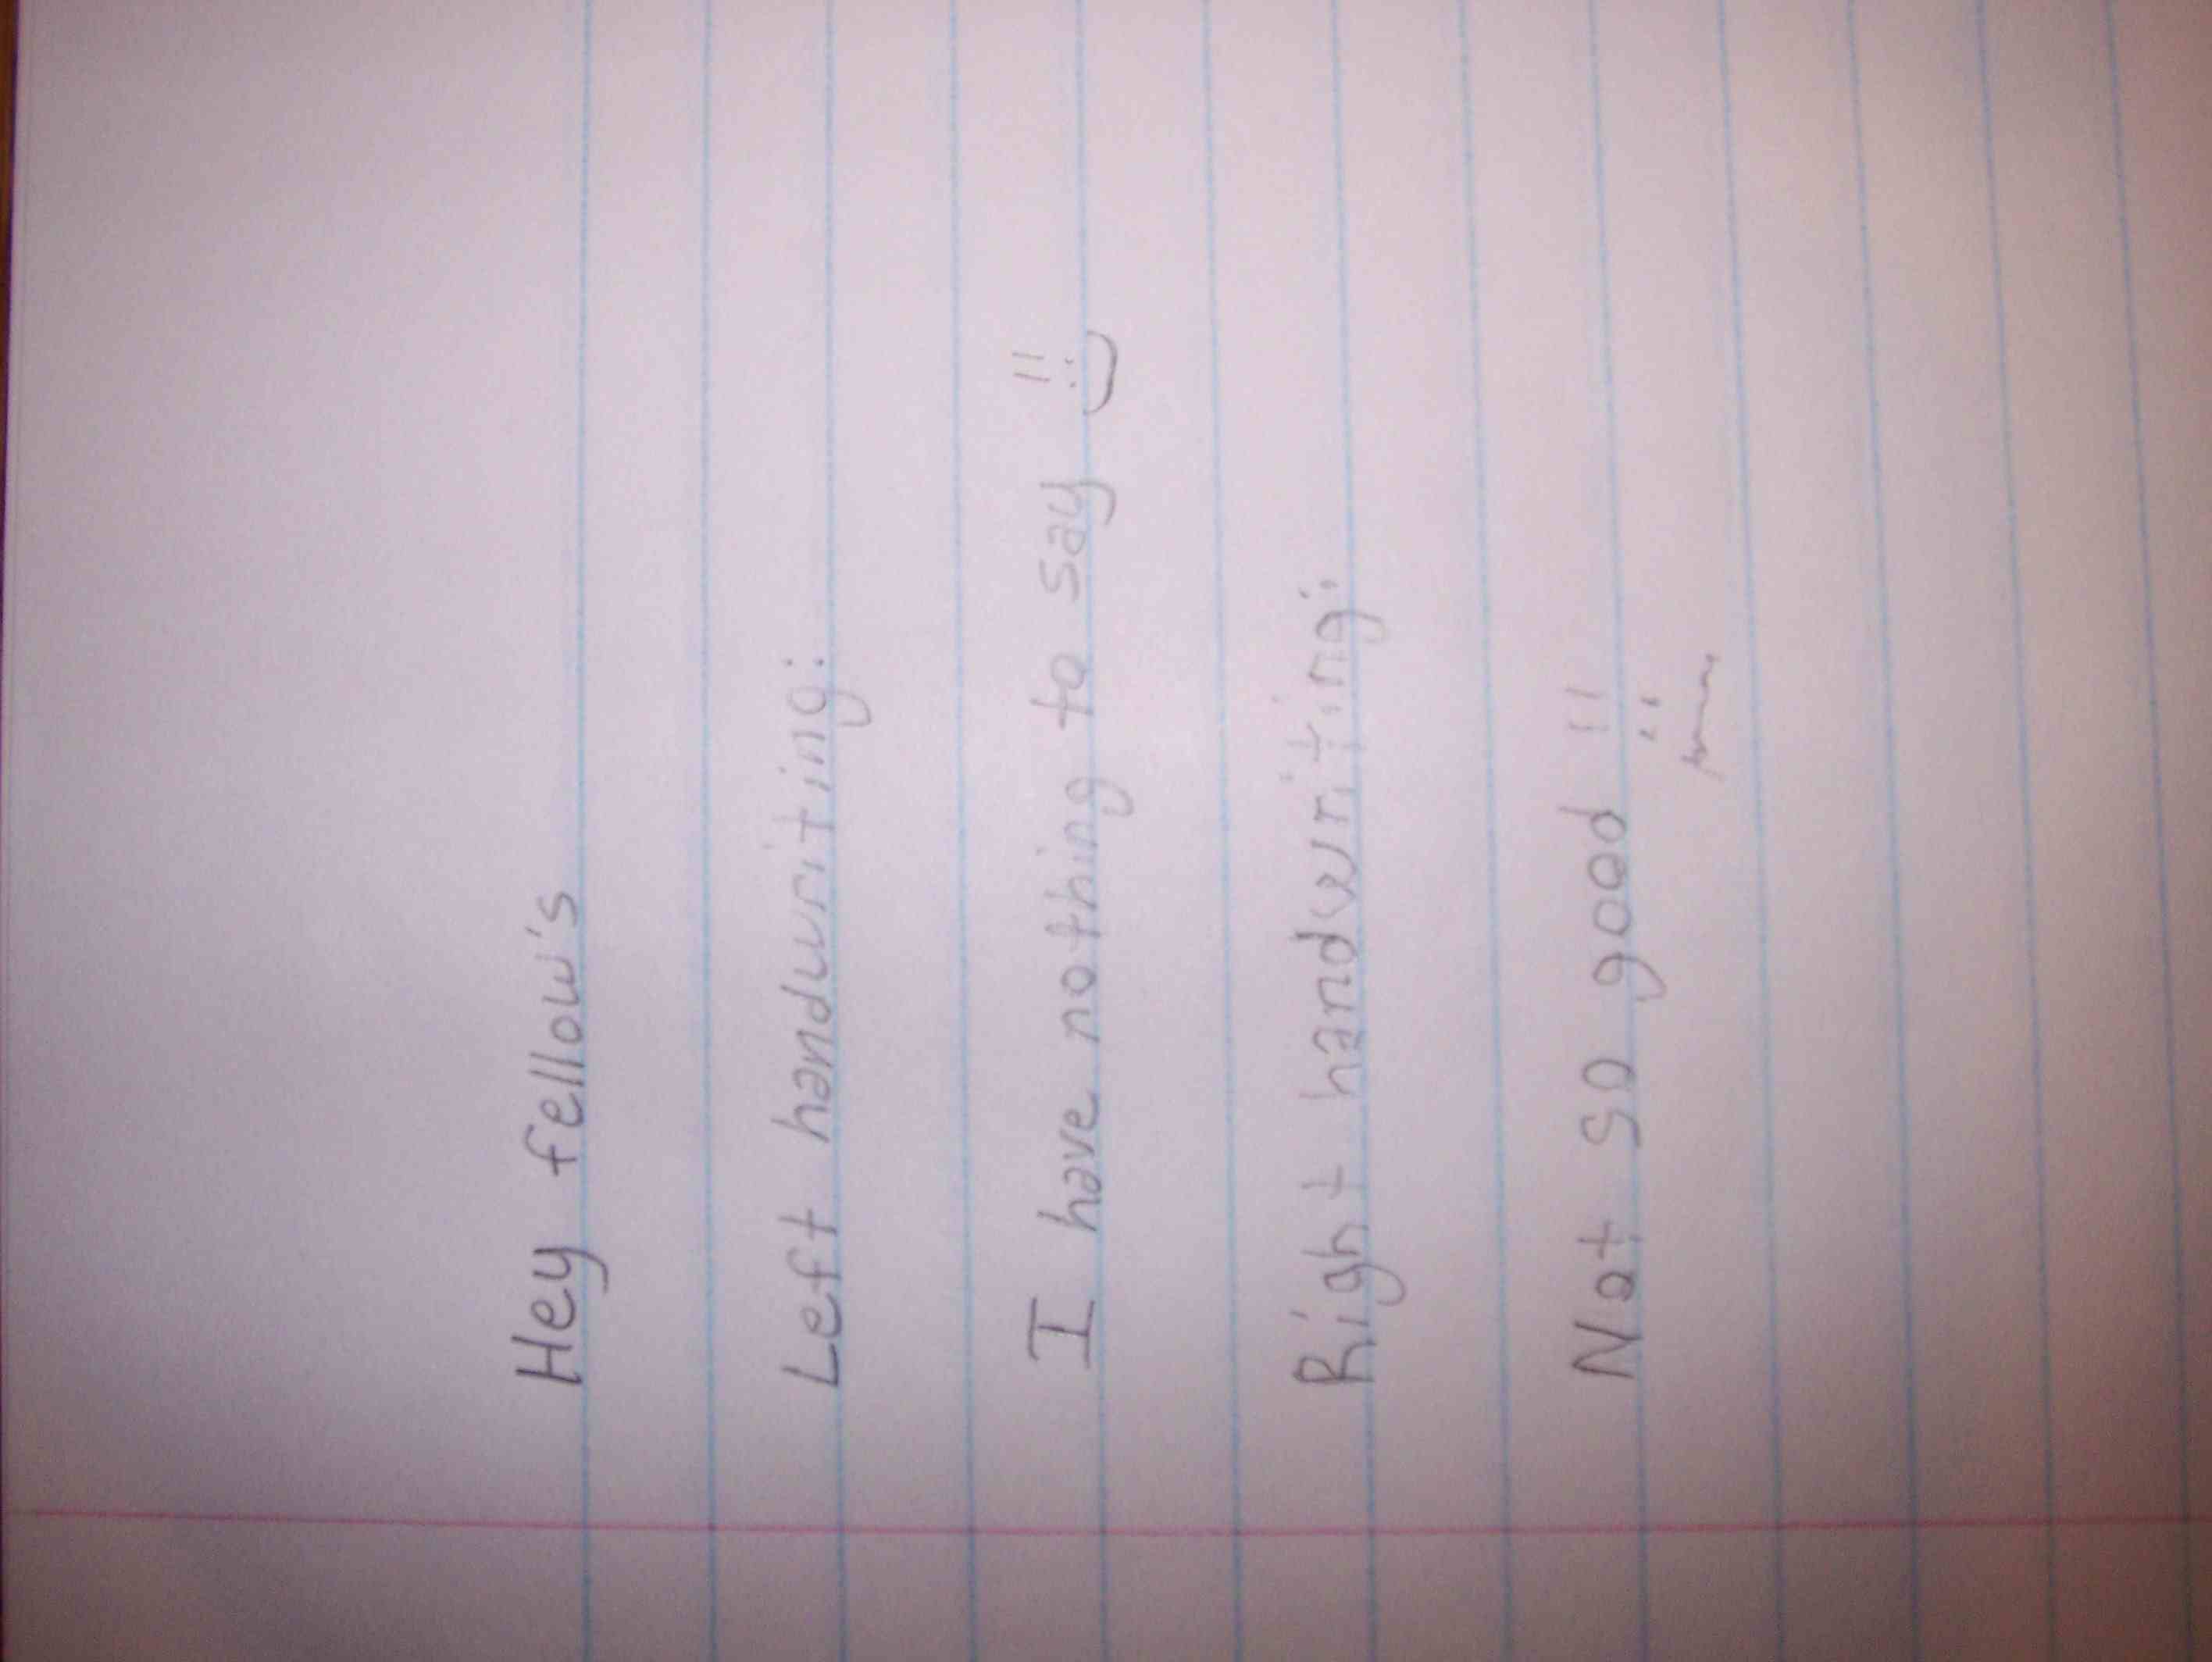 Hey fellow's
Left handwriting:
I have nothing to say !!
Right handwriting:
Not so good !!